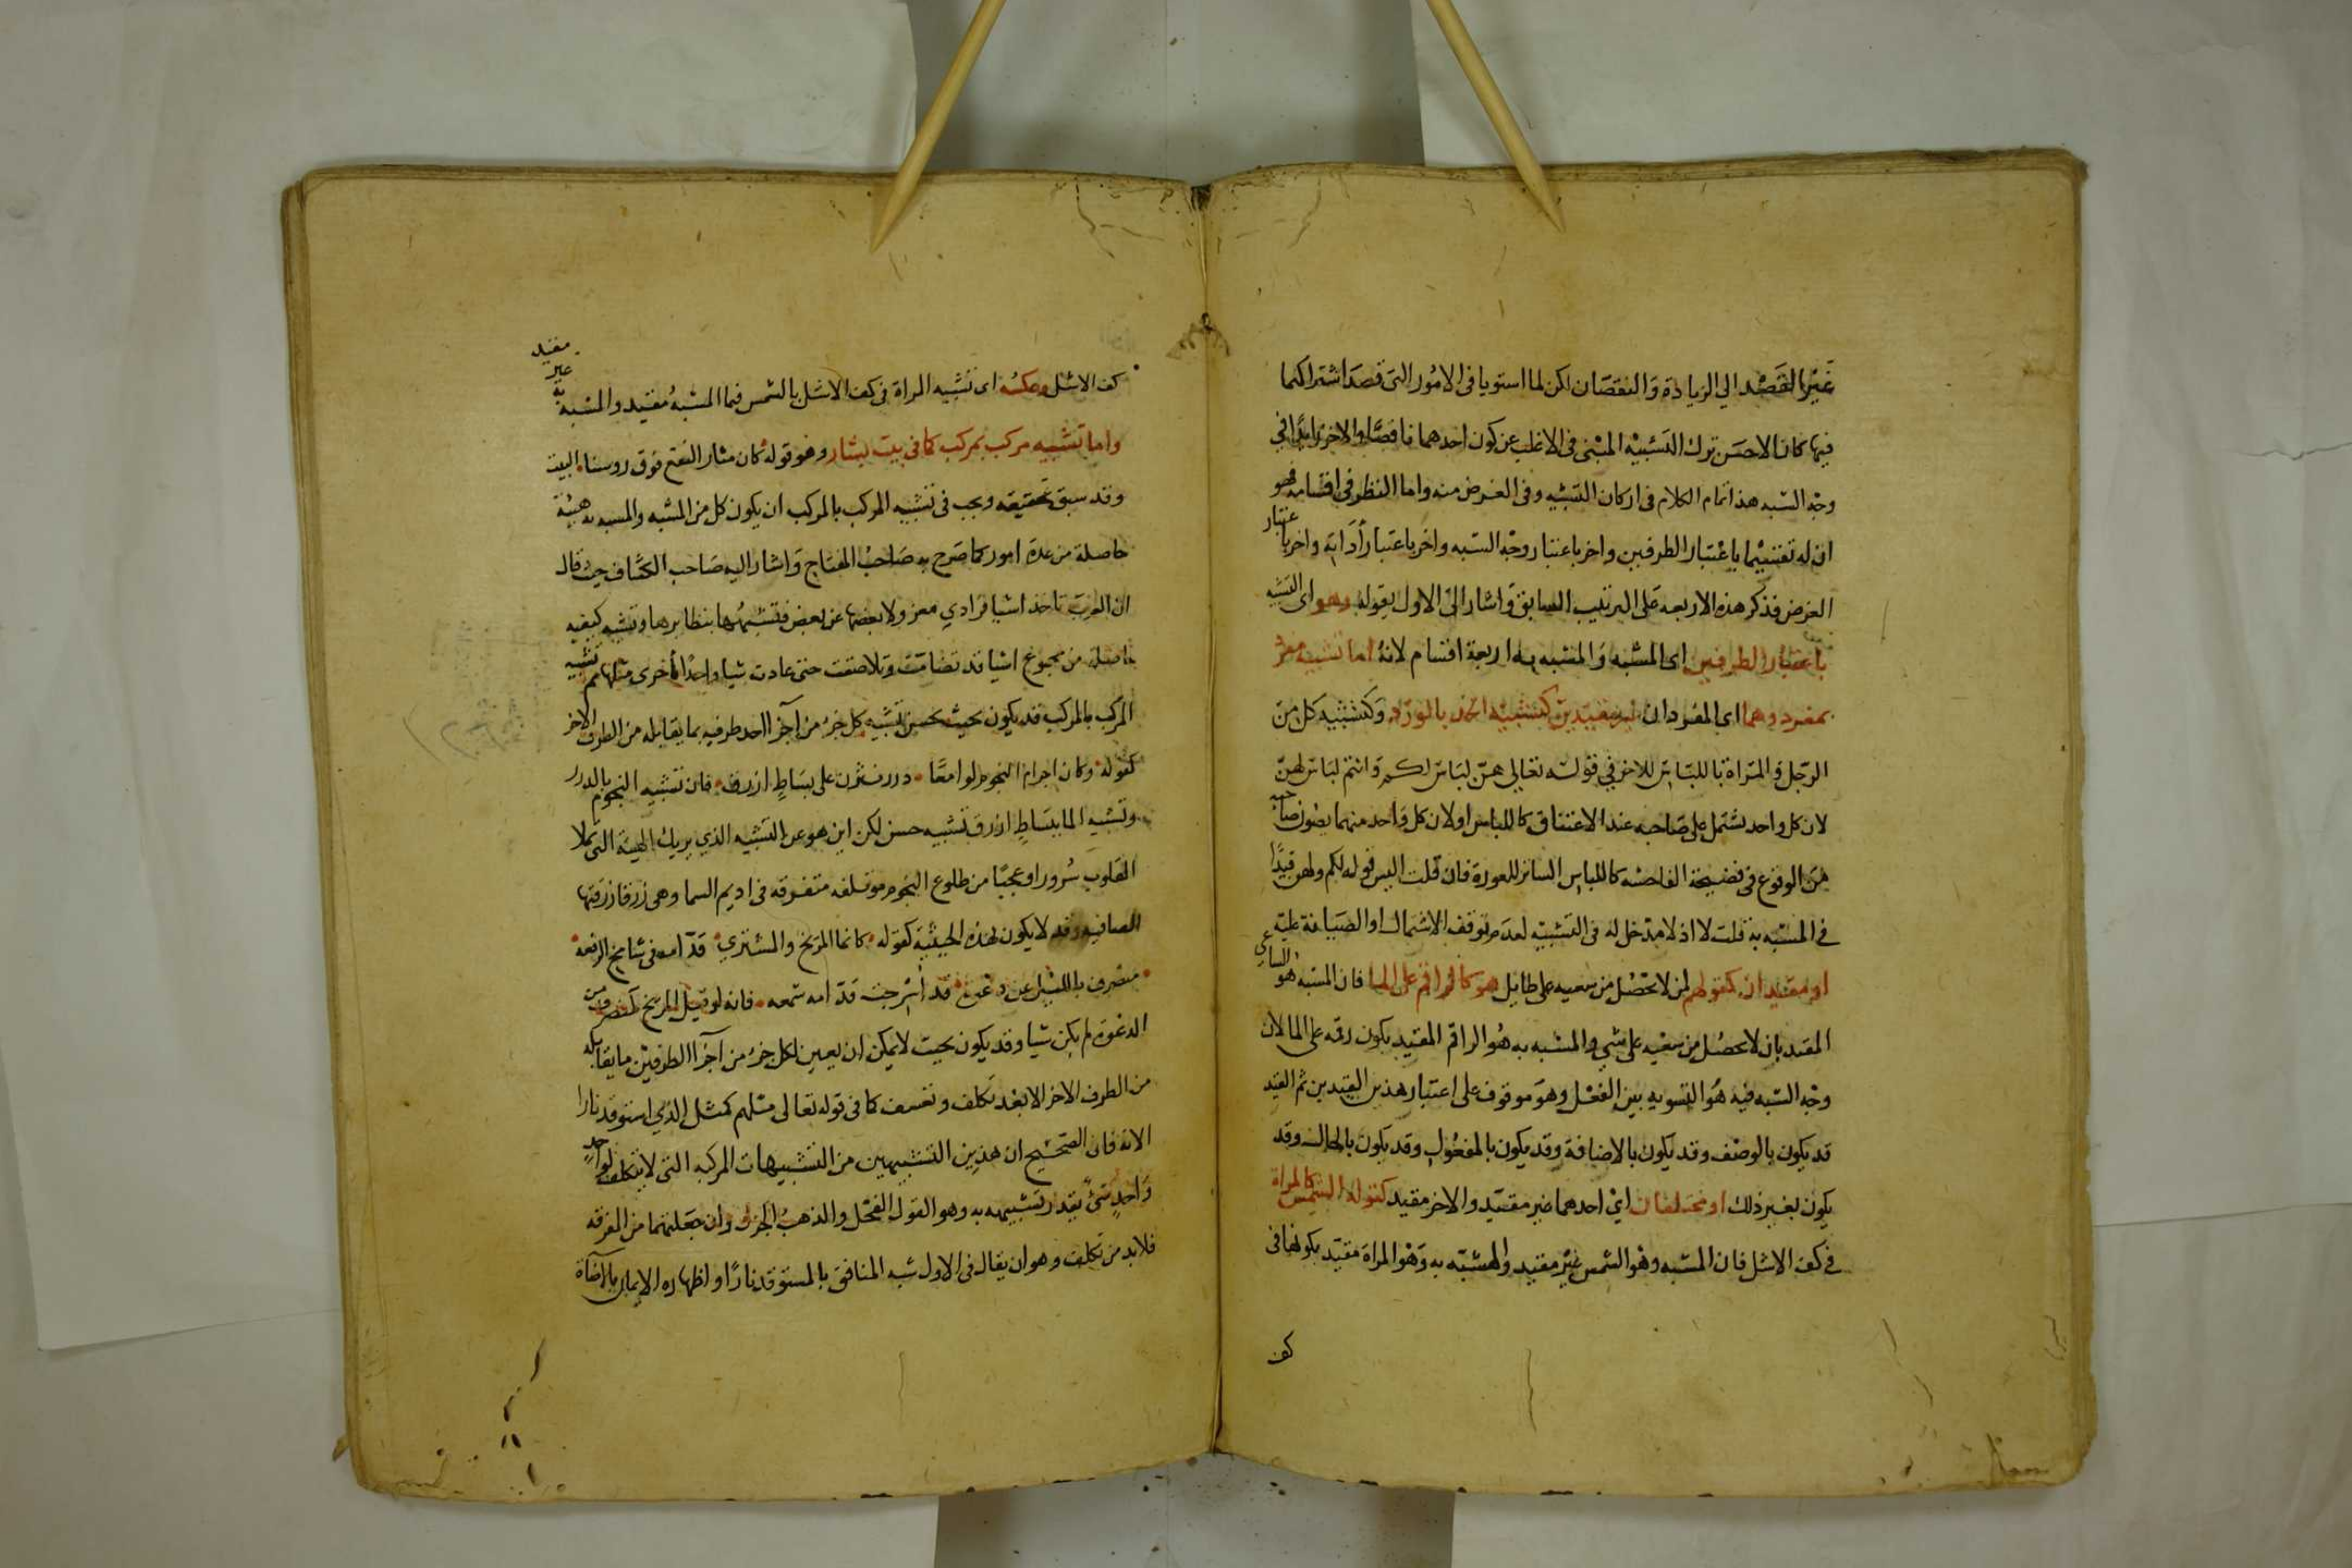 غير القصد الي الزيادة والنقصان لكن لما استويا فى الامور التى قصد اشتراكهما
فيها كان الاحسن ترك التشبيه المبنى فى الاغلب عن كون احدهما ناقصا والاخر زايدا فى
وجه الشبه هذا تمام الكلام فى اركان التشبيه وفى الغرض منه واما النظر فى اقسامه فهو
ان له تقسيما باعتبار الطرفين واخر باعتبار وجه الشبه واخر باعتبار أداته واخر باعتبار
الغرض فذكر هذه الاربعه على الترتيب السابق واشار الى الاول بقوله وهو اى التشبيه
باعتبار الطرفين اى المشبه والمشبه به اربعة اقسام لانه اما تشبيه مفرد
بمفرد وهما اى المفردان غير مقيدين كتشبيه الخد بالورد وكتشبيه كل من
الرجل والمراة باللباس للاخر في قوله تعالي هن لباس لكم وانتم لباس لهن
لان كل واحد يشتمل على صاحبه عند الاعتناق كاللباس او لان كل واحد منهما يصون صاحبه
من الوقوع فى فضيحة الفاحشه كاللباس الساتر للعورة فان قلت اليس قوله لكم ولهن قيدا
فى المشبه به قلت لا اذ لا مدخل له فى التشبيه لعدم توقف الاشتمال او الصيانة عليه
او مقيدان كقولهم لمن لا يحصل من سعيه على طايل هو كالراقم على الما فان المشبه هو الساعي
المقيد بان لا يحصل من سعيه على شي والمشبه به هو الراقم المقيد بكون رقمه على الما لان
وجه الشبه فيه هو التسويه بين الفعل وهو موقوف على اعتبار هذين القيدين ثم القيد
قد يكون بالوصف وقد يكون بالاضافة وقد يكون بالمفعول وقد يكون بالحال وقد
يكون بغير ذلك او مختلفان اي احدهما غير مقيد والاخر مقيد كقوله الشمس كالمراة
فى كف الاشل فان المشبه وهو الشمس غير مقيد والمشبه به وهو المراة مقيد بكونها فى
كف
كف الاشل وعكسه اى تشبيه المراة فى كف الاشل بالشمس فيما المشبه مقيد والمشبه به غير مقيد
واما تشبيه مركب بمركب كما فى بيت بشار وهو قوله كان مثار النقع فوق روسنا البيت
وقد سبق تحقيقه ويجب فى تشبيه المركب بالمركب ان يكون كل من المشبه والمشبه به هيئة
حاصلة من عدة امور كما صرح به صاحب المفتاح واشار اليه صاحب الكشاف حيث قال
ان العرب تاخذ اشيا فرادي معزولا بعضها عن بعض فتشبهها بنظايرها وتشبه كيفيه
حاصلة من مجموع اشيا قد تضامت وتلاصقت حتى عادت شيا واحدا باخرى مثلها ثم تشبيه
المركب بالمركب قد يكون بحيث يحسن تشبيه كل جزء من اجزا احد طرفيه بما يقابله من الطرف الاخر
كقوله وكان اجرام النجوم لوامعا درر نثرن على بساط ازرق فان تشبيه النجوم بالدرر
وتشبيه السما ببساط ازرق تشبيه حسن لكن اين هو عن التشبيه الذي يريك الهيئة التى تملا
القلوب سرورا وعجبا من طلوع النجوم موتلفه متفرقه فى اديم السما وهى زرقا زرقتها
الصافيه وقد لا يكون لهذه الحيثية كقوله كانما المريخ والمشتري قدامه فى شامخ الرفعه
منصرف بالليل عن دعوة قد اسرجت قدامه شمعه فانه لو قيل المريخ كمنصرف من
الدعوة لم يكن شيا وقد يكون بحيث لا يمكن ان يعين لكل جزء من اجزا الطرفين ما يقابله
من الطرف الاخر الا بعد تكلف وتعسف كما فى قوله تعالى مثلهم كمثل الذي استوقد نارا
الايه فان الصحيح ان هذين التشبيهين من التشبيهات المركبه التى لا يتكلف لواحد
واحد شئ يقدر تشبيهه به وهو القول الفحل والمذهب الجزل وان جعلتهما من المفرقه
فلا بد من تكلف وهو ان يقال فى الاول شبه المنافق بالمستوقد نارا واظهاره الايمان بالاضاة